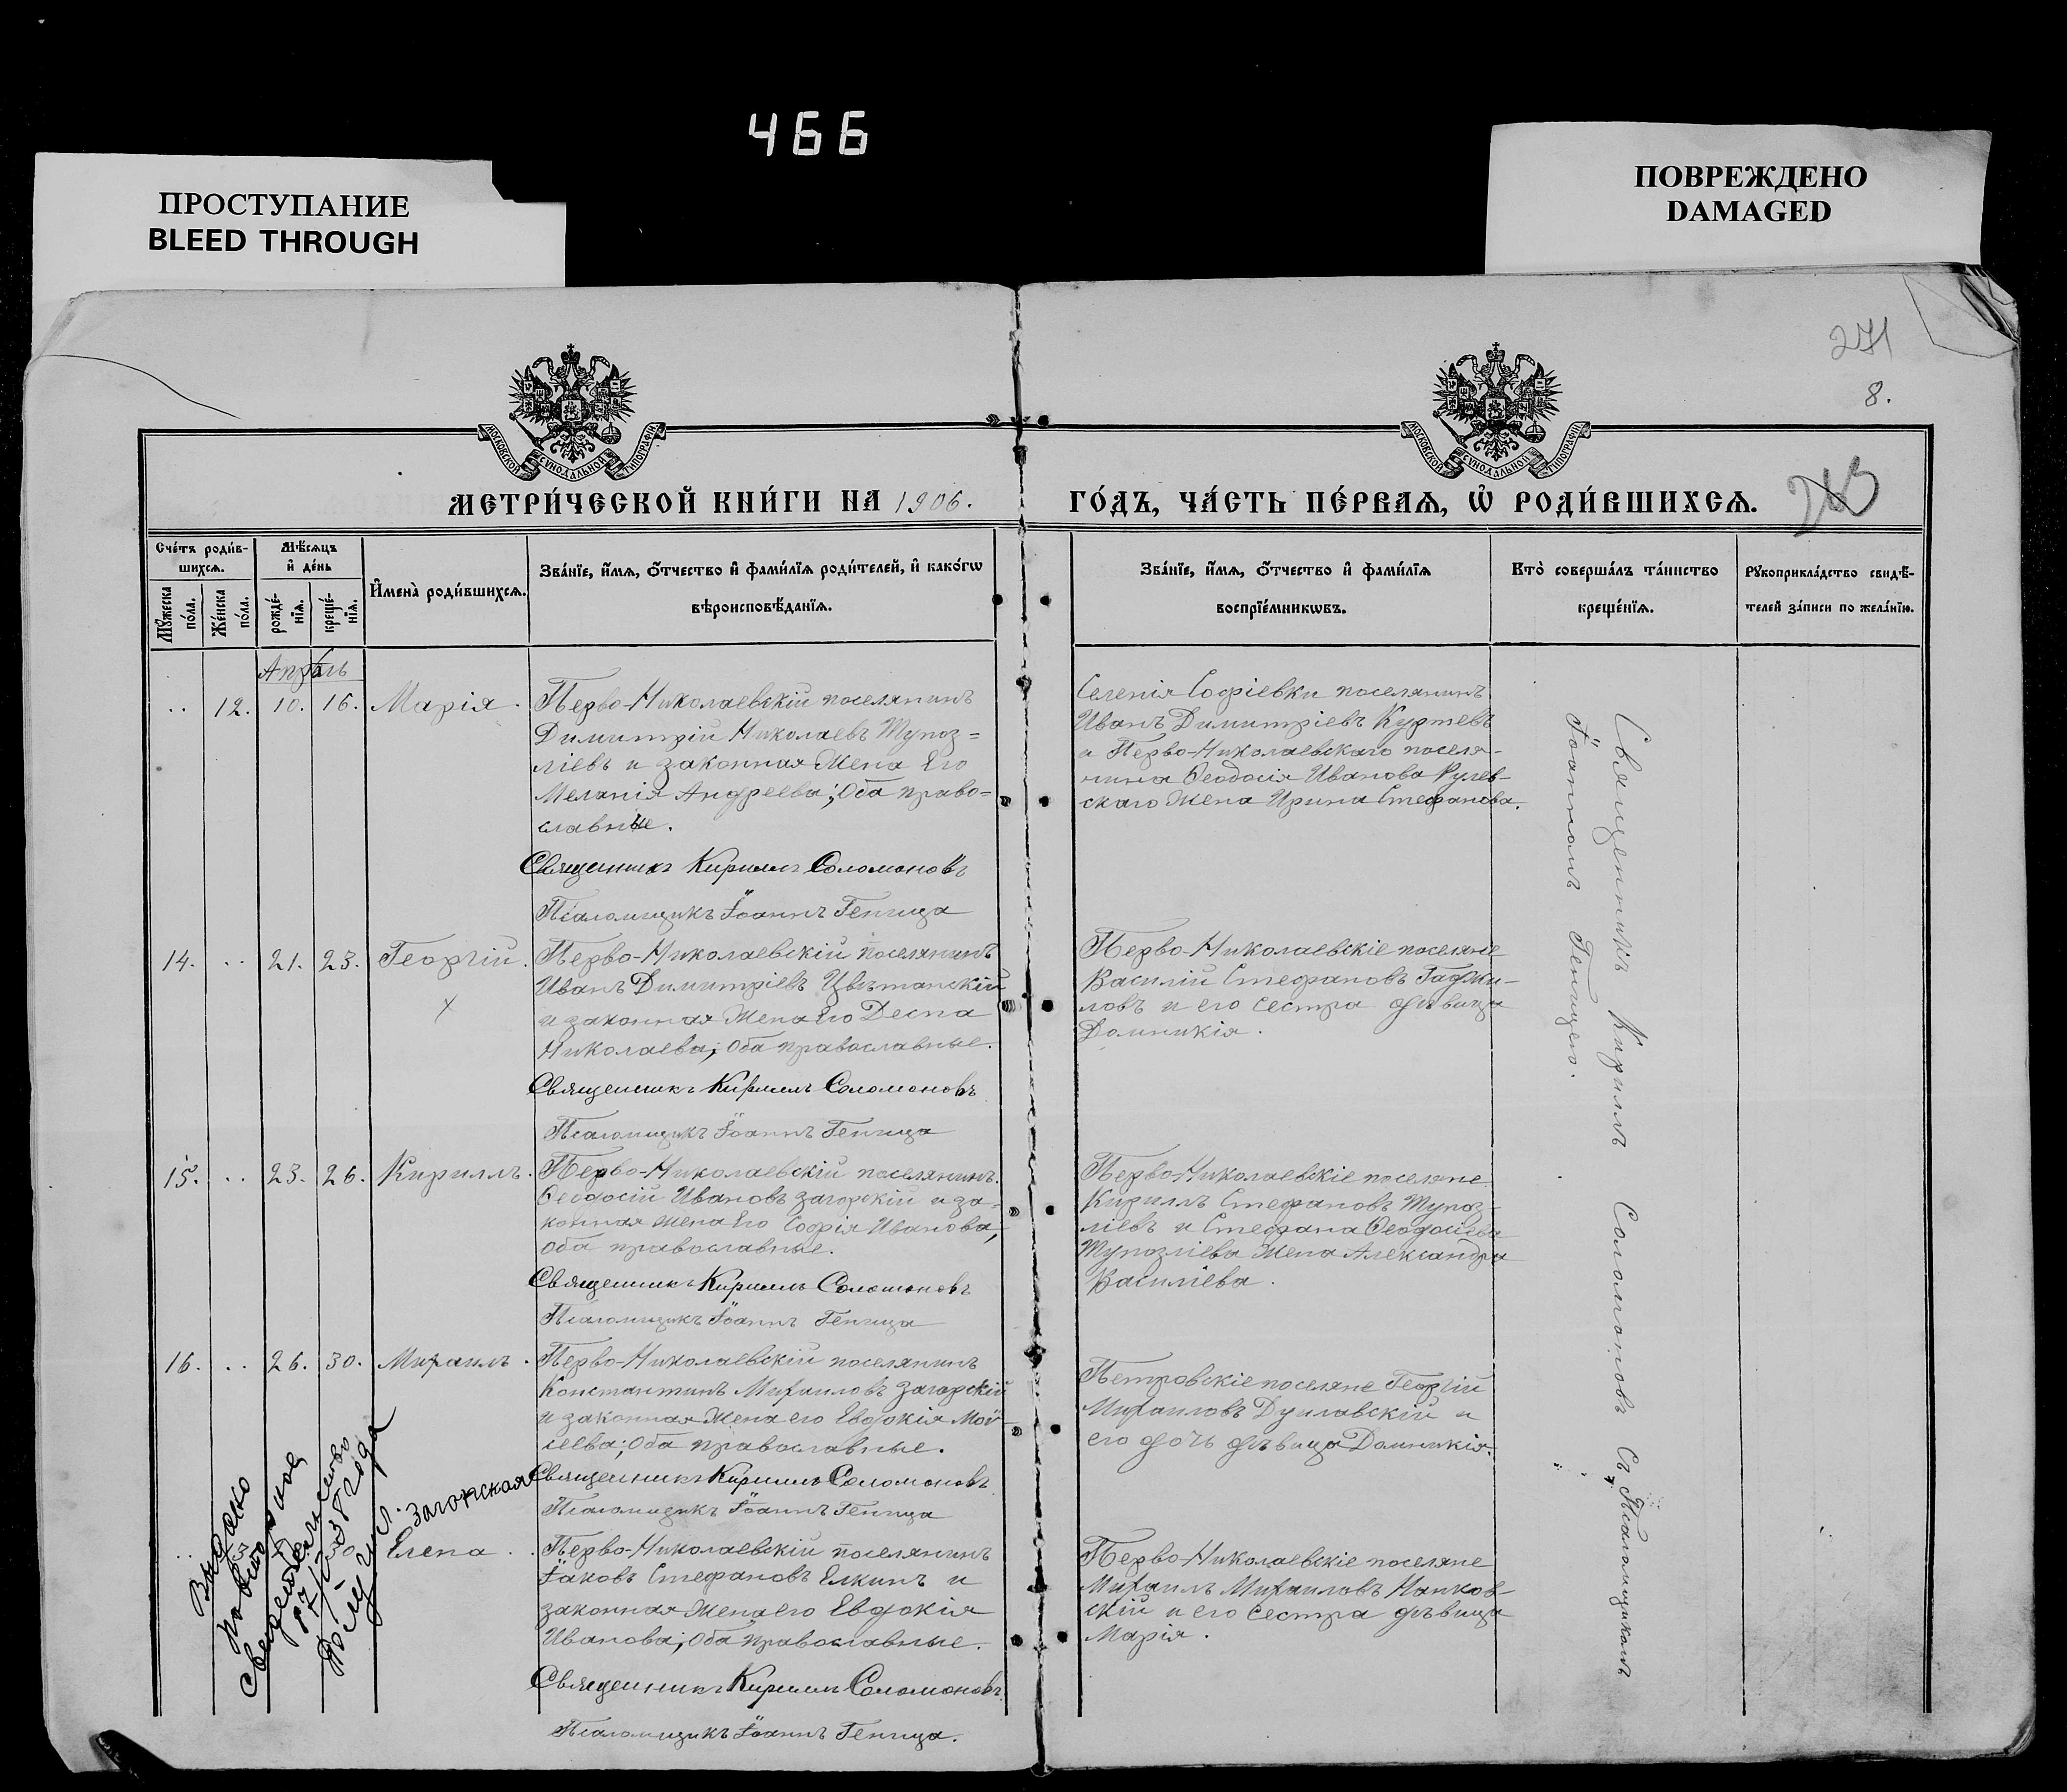 466
ПРОСТУПАНИЕ
BLEED THROUGH
ПОВРЕЖДЕНО
DAMAGED
271
8.
МОСКОВСКОЙ СѴНОДАЛЬНОЙ ТИПОГРАФІИ
МОСКОВСКОЙ СѴНОДАЛЬНОЙ ТИПОГРАФІИ
МЕТРИ́ЧЕСКОЙ КНИ́ГИ НА 1906.
ГО́ДЪ, ЧА́СТЬ ПЕ́РВАѦ, Ѡ҆ РОДИ́ВШИХСѦ.
Сче́тъ роди́в-
шихсѧ.
Мꙋ́жеска по́ла.
Же́нска по́ла.
Мѣ́сѧцъ
и҆ де́нь
рожде́-
нїѧ.
креще́-
нїѧ.
И҆мена̀ роди́вшихсѧ.
Зва́нїе, и҆́мѧ, ѻ҆́тчество и҆ фами́лїѧ роди́телей, и҆ како́гѡ
вѣроисповѣ́данїѧ.
Зва́нїе, и҆́мѧ, ѻ҆́тчество и҆ фами́лїѧ
воспрїе́мникѡвъ.
Кто̀ соверша́лъ та́инство
креще́нїѧ.
Рꙋкоприкла́дство свидѣ́-
телей за́писи по жела́нїю.
Апрѣль
.. 12. 10. 16. Марія.
Перво-Николаевскій поселянинъ
Димитрій Николаевъ Тупоз=
ліевъ и законная Жена Его
Меланія Андреева; Оба право=
славные.
Священникъ Кириллъ Соломоновъ
Псаломщикъ Іоаннъ Генгица
Селенія Софіевки поселянинъ
Иванъ Димитріевъ Куртевъ
и Перво-Николаевскаго поселя-
нина Ѳеодосія Иванова Рулев-
скаго Жена Ирина Стефанова.
14. .. 21. 23. Георгій.
Перво-Николаевскій поселянинъ
Иванъ Димитріевъ Цвѣтанскій
и законная Жена Его Деспа
Николаева; Оба православные.
Священникъ Кириллъ Соломоновъ
Псаломщикъ Іоаннъ Генгица
Перво-Николаевскіе поселяне
Василій Стефановъ Гаджи-
ловъ и его сестра дѣвица
Домникія.
15. .. 23. 26. Кириллъ.
Перво-Николаевскій поселянинъ
Ѳеодосій Ивановъ Загорскій и за-
конная Жена Его Софія Иванова,
Оба православные.
Священникъ Кириллъ Соломоновъ
Псаломщикъ Іоаннъ Генгица
Перво-Николаевскіе поселяне
Кириллъ Стефановъ Тупоз-
ліевъ и Стефана Ѳеодосіева
Тупозліева Жена Александра
Василіева.
16. .. 26. 30. Михаилъ.
Перво-Николаевскій поселянинъ
Константинъ Михаиловъ Загорскій
и законная Жена его Евдокія Мой-
сеева; Оба православные.
Священникъ Кириллъ Соломоновъ
Псаломщикъ Іоаннъ Генгица
Петровскіе поселяне Георгій
Михаиловъ Дуплавскій и
его дочь дѣвица Домникія.
Елена.
Перво-Николаевскій поселянинъ
Іаковъ Стефановъ Елкинъ и
законная Жена его Евдокія
Иванова; Оба православные.
Священникъ Кириллъ Соломоновъ
Псаломщикъ Іоаннъ Генгица.
Перво-Николаевскіе поселяне
Михаилъ Михаиловъ Напков-
скій и его сестра дѣвица
Марія.
Священникъ Кириллъ Соломоновъ Съ Псаломщикомъ
Іоанномъ Генгицею.
Выдано
повторное
свидетельство
года
Загорская